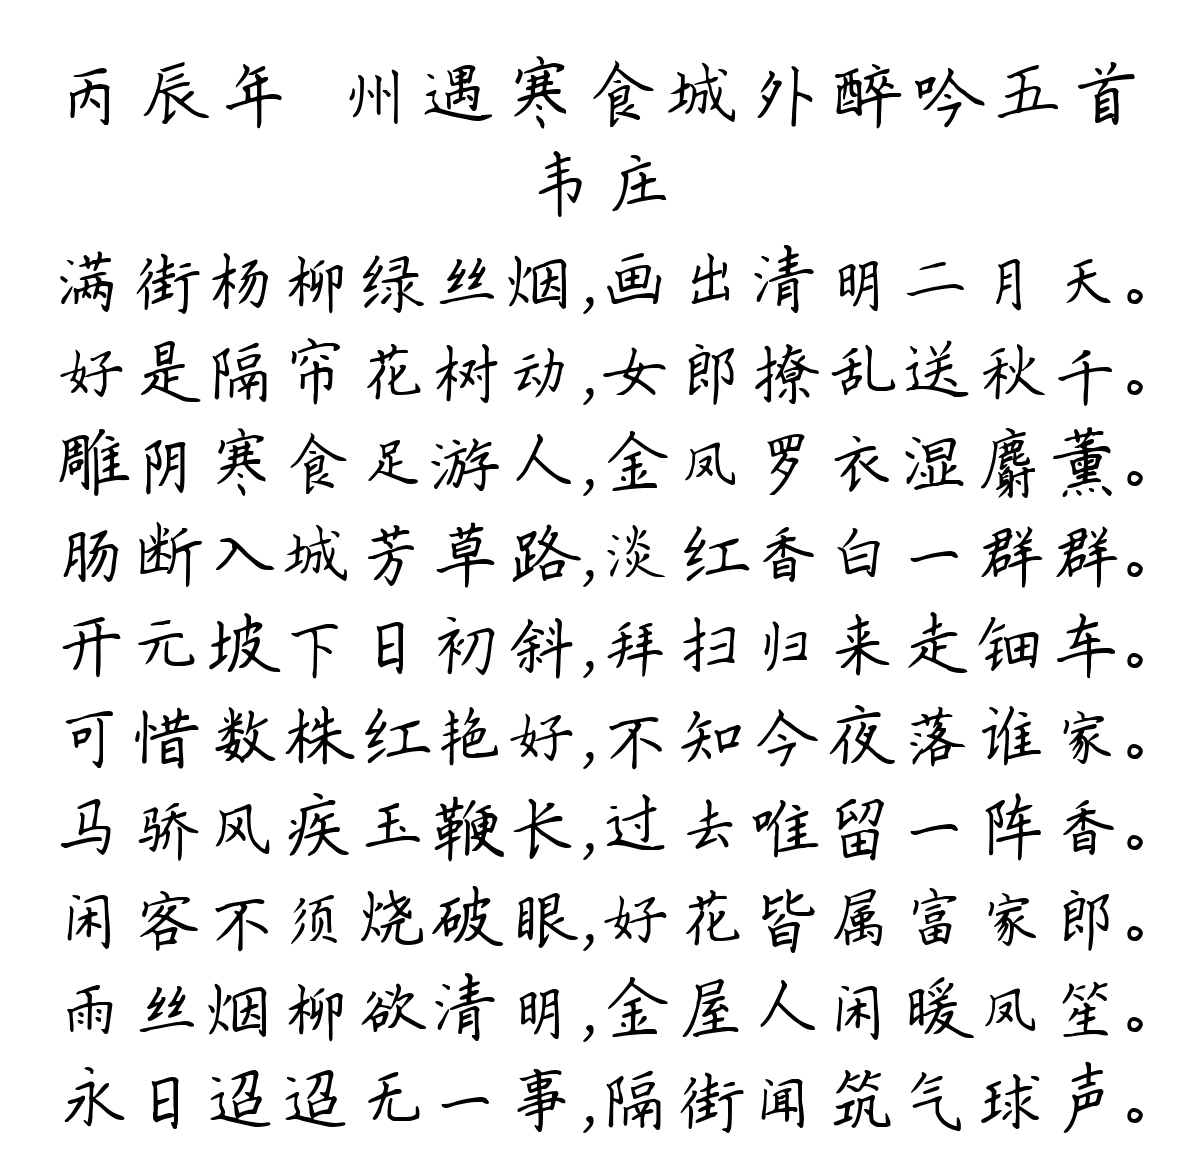 丙辰年 州遇寒食城外醉吟五首
韦庄
满街杨柳绿丝烟,画出清明二月天。
好是隔帘花树动,女郎撩乱送秋千。
雕阴寒食足游人,金凤罗衣湿麝薰。
肠断入城芳草路,淡红香白一群群。
开元坡下日初斜,拜扫归来走钿车。
可惜数株红艳好,不知今夜落谁家。
马骄风疾玉鞭长,过去唯留一阵香。
闲客不须烧破眼,好花皆属富家郎。
雨丝烟柳欲清明,金屋人闲暖凤笙。
永日迢迢无一事,隔街闻筑气球声。